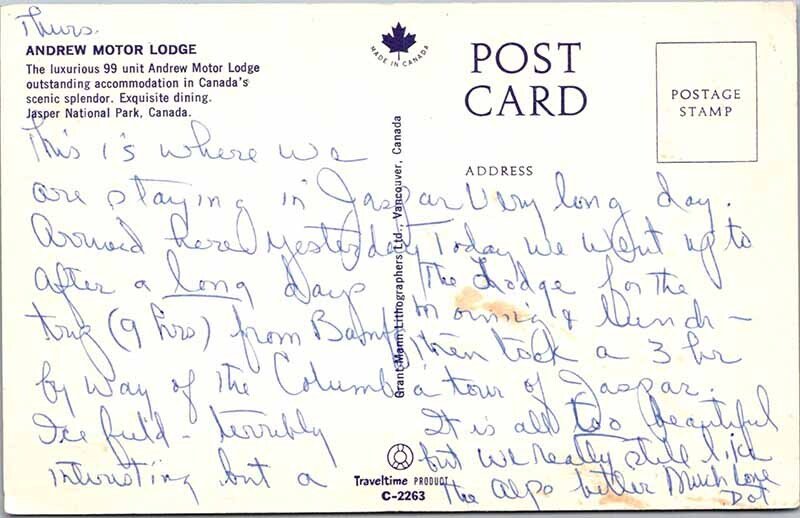 Thurs.
ANDREW MOTOR LODGE
The luxurious 99 unit Andrew Motor Lodge
outstanding accommodation in Canada's
scenic splendor. Exquisite dining.
Jasper National Park, Canada.
This is where we
are staying in Jaspar
Arrived here yesterday
after a long days
trip (9 hrs) from Banff
by way of the Columbia
Ice field - terribly
interesting but a
MADE IN CANADA
Grant-Mann Lithographers Ltd., Vancouver, Canada
Traveltime PRODUCT
C-2263
POST
CARD
POSTAGE
STAMP
ADDRESS
Very long day.
Today we went up to
The Lodge for the
morning & lunch -
then took a 3 hr
tour of Jaspar.
It is all too beautiful
but we really still like
the Alps better Much Love
Dot